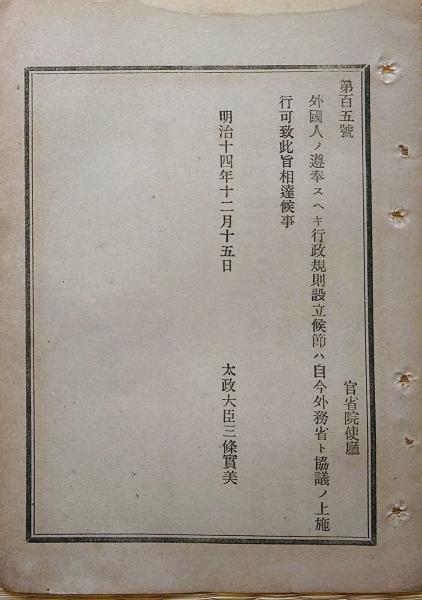 第百五號
官省院使廳
外國人ノ遵奉スヘキ行政規則設立候節ハ自今外務省ト協議ノ上施
行可致此旨相達候事
明治十四年十二月十五日
太政大臣三條實美